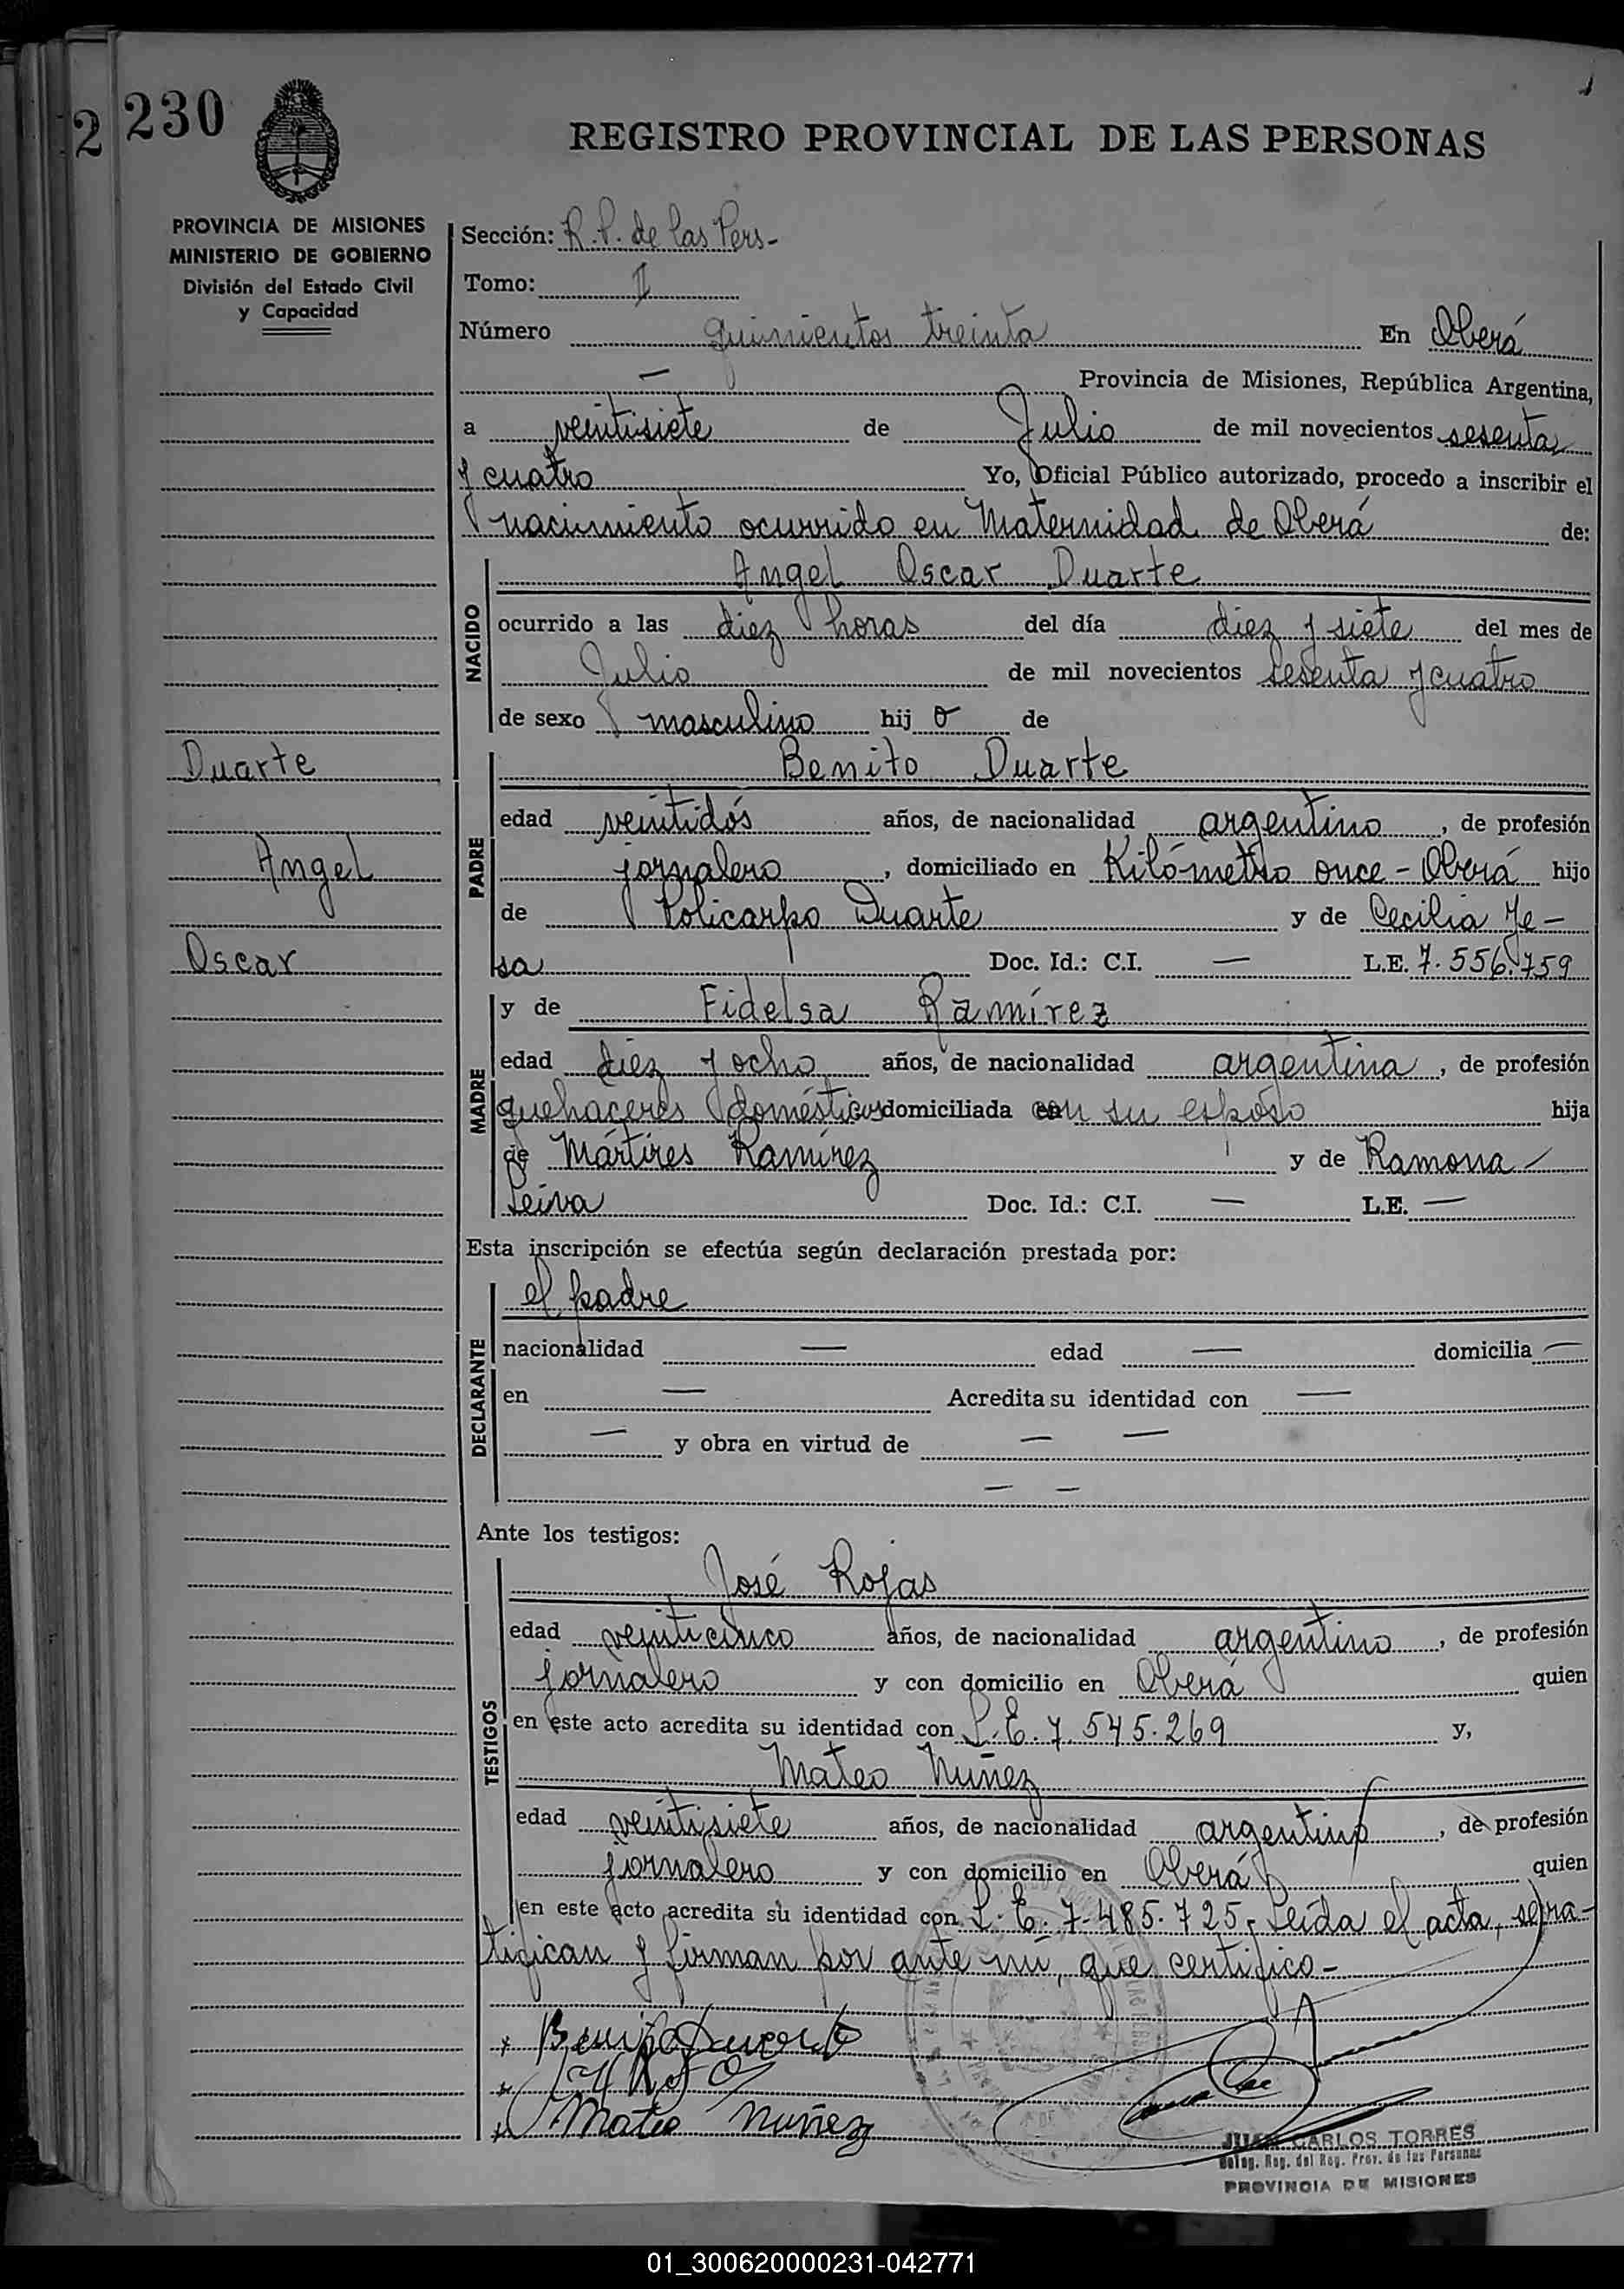 2 230
REGISTRO PROVINCIAL DE LAS PERSONAS
PROVINCIA DE MISIONES
MINISTERIO DE GOBIERNO
División del Estado Civil
y Capacidad
Sección: R.P. de las Pers-
Tomo: II
Número quinientos treinta En Oberá
— Provincia de Misiones, República Argentina,
a veintisiete de Julio de mil novecientos sesenta
y cuatro Yo, Oficial Público autorizado, procedo a inscribir el
nacimiento ocurrido en Maternidad de Oberá de:
NACIDO
Angel Oscar Duarte
ocurrido a las diez horas del día diez y siete del mes de
Julio de mil novecientos sesenta y cuatro
de sexo masculino hijo de
Duarte
Angel
Oscar
PADRE
Benito Duarte
edad veintidós años, de nacionalidad argentino, de profesión
jornalero, domiciliado en Kilómetro once - Oberá hijo
de Policarpo Duarte y de Cecilia Ye-
sa Doc. Id.: C.I. — L.E. 7.556.759
MADRE
y de Fidelsa Ramírez
edad diez y ocho años, de nacionalidad argentina, de profesión
quehaceres domésticos domiciliada con su esposo hija
de Mártires Ramírez y de Ramona —
Leiva Doc. Id.: C.I. — L.E. —
Esta inscripción se efectúa según declaración prestada por:
DECLARANTE
el padre
nacionalidad — edad — domicilia —
en — Acredita su identidad con —
— y obra en virtud de — —
— —
Ante los testigos:
TESTIGOS
José Rojas
edad veinticinco años, de nacionalidad argentino, de profesión
jornalero y con domicilio en Oberá quien
en este acto acredita su identidad con L.E. 7.545.269 y,
Mateo Núñez
edad veintisiete años, de nacionalidad argentino, de profesión
jornalero y con domicilio en Oberá quien
en este acto acredita su identidad con L.E. 7.485.725, Leída el acta, se ra-
tifican y firman por ante mí, que certifico -
Benito Duarte
Mateo Nuñez
JUAN CARLOS TORRES
Deleg. Reg. del Reg. Prov. de las Personas
PROVINCIA DE MISIONES
01_300620000231-042771